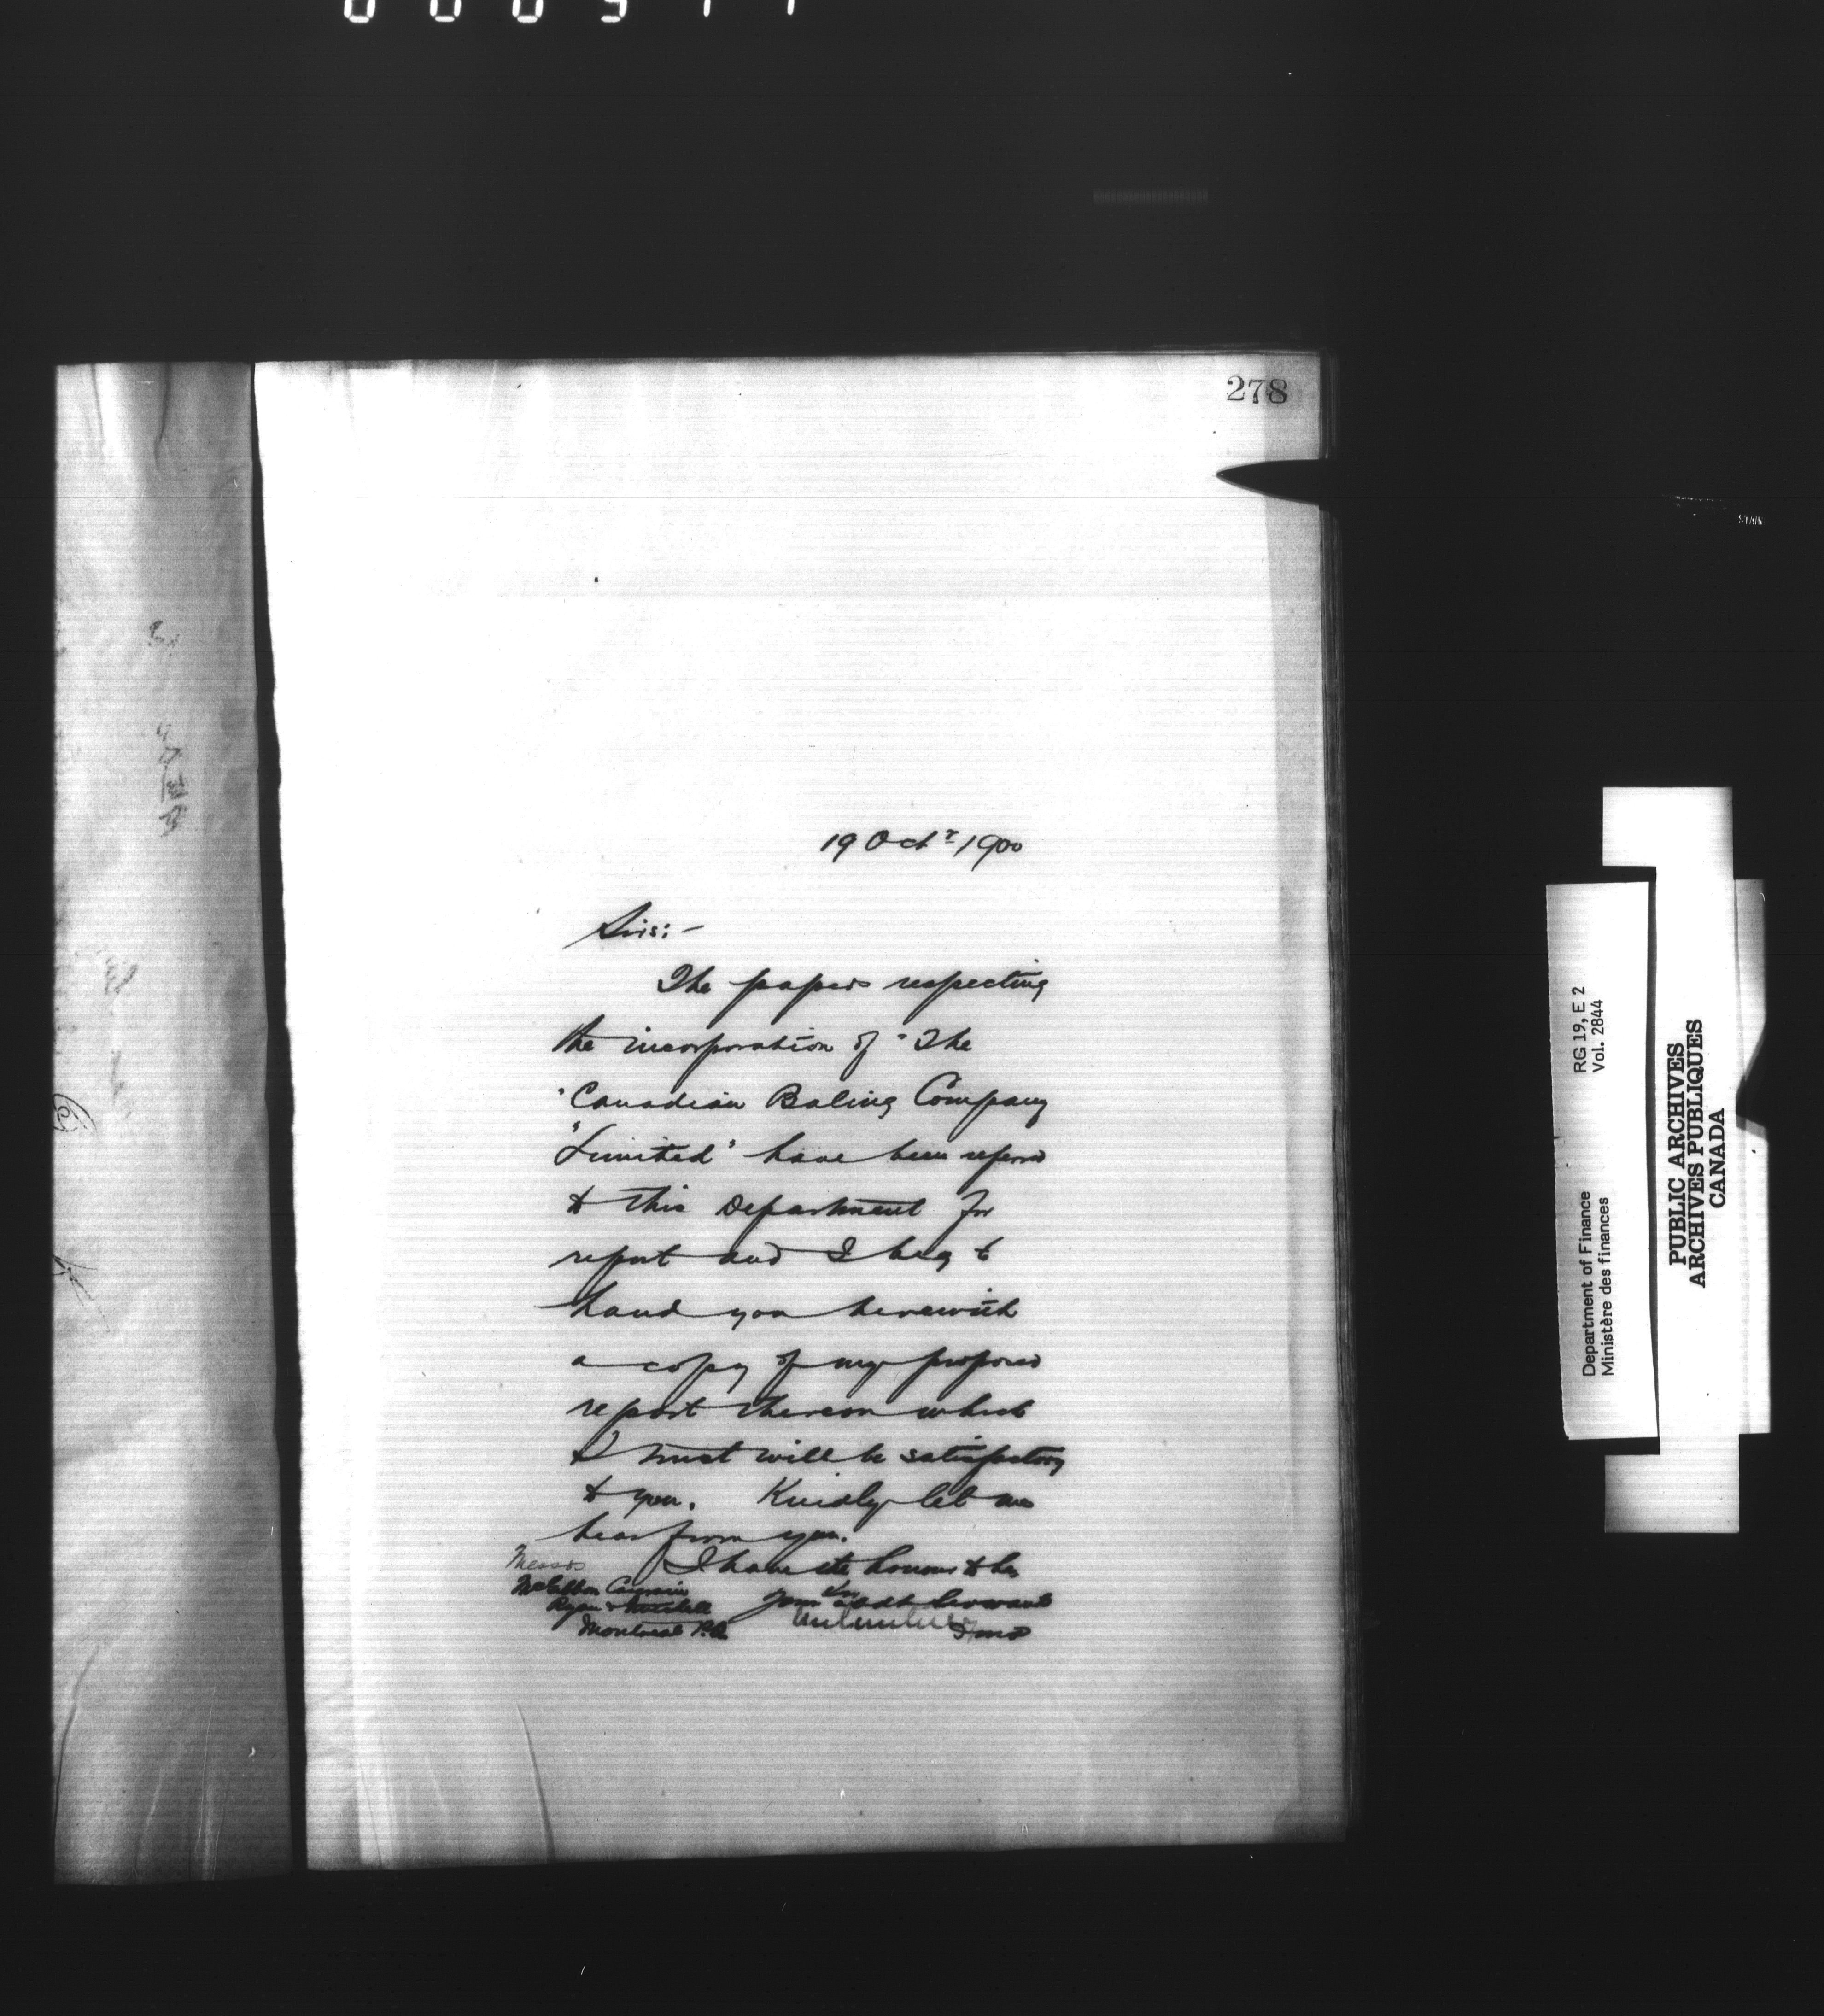 278
19 Octr 1900
Sirs:-
The papers respecting
the incorporation of "The
"Canadian Baling Company
"Limited" have been referred
to this Department for
report and I beg to
hand you herewith
a copy of my proposed
report thereon which
I trust will be satisfactory
to you. Kindly let me
hear from you.
I have the honour to be
Sirs
Your obdt servant
Messrs
McGibbon Casgrain
Ryan & Mitchell
Montreal P.Q.
RG 19, E 2
Vol. 2844
Department of Finance
Ministère des finances
PUBLIC ARCHIVES
ARCHIVES PUBLIQUES
CANADA